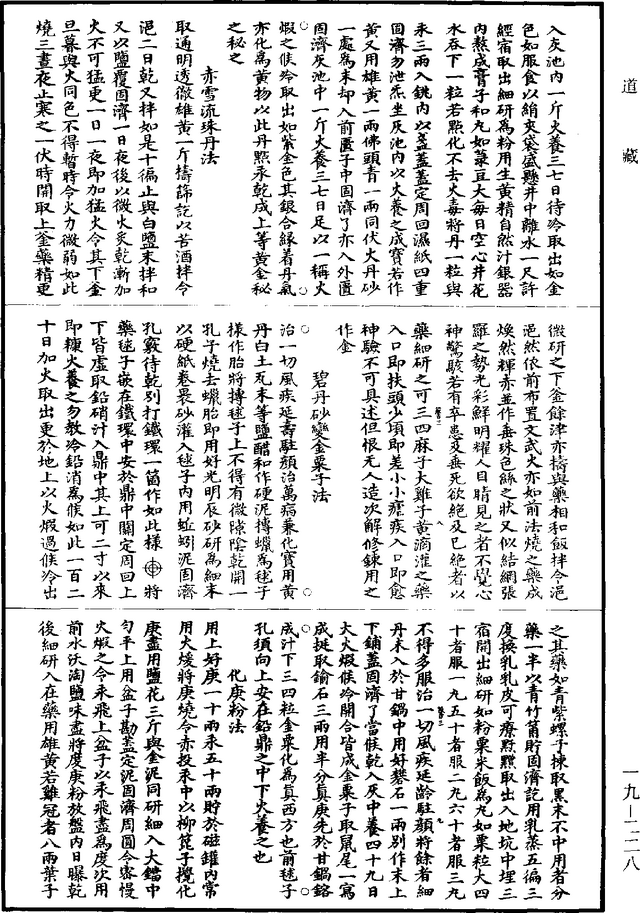 道藏
入灰池內一斤火養三七日待冷取出如金
色如服食以絹夾袋盛懸井中離水一尺許
經宿取出細研為粉用生黃精自然汁銀器
內熬成膏子和丸如菉豆大每日空心井花
水吞下一粒若點化不去火毒將丹一粒與
汞三兩入銚內以盞蓋蓋定周回濕紙四重
固濟勿泄炁坐灰池內以火養之成寶若作
黃又用雄黃一兩佛頭青一兩同伏火丹砂
一處為末却入前匱子中固濟了亦入外匱
固濟灰池中一斤火養三七日足以一稱火
煅之候冷取出如紫金色其銀合緣着丹氣
亦化為黃物以此丹點汞乾成上等黃金秘
之秘之
赤雪流珠丹法
取通明透徹雄黃一斤擣篩訖以苦酒拌令
浥二日乾又拌如是十徧止與白鹽末拌和
又以鹽覆固濟一日夜後以微火炙乾漸加
火不可猛更一日一夜即加猛火令其下釜
旦暮與火同色不得暫時令火力微弱如此
燒三晝夜止寒之一伏時開取上釜藥精更
微研之下釜餘津亦擣與藥相和飯拌令浥
浥然依前布置文武火亦如前法燒之藥成
煥然輝赤並作垂珠色絲之狀又似結網張
羅之勢光彩鮮明耀人目睛見之者不覺心
神驚駭若有卒患及垂死欲絕及已絕者以
藥細研之可三四麻子大雞子黃滴灌之藥
入口即扶頭少頃即差小小瘧疾入口即愈
神驗不可具述但恨无人造次解修鍊用之
作金
碧丹砂變金粟子法
治一切風疾延壽駐顏治萬病兼化寶用黃
丹白土瓦末等鹽醋和作硬泥摶蠟為毬子
樣作胎將摶毬子上不得有微隙陰乾開一
孔子燒去蠟胎即用好光明辰砂研為細末
以硬紙卷裹砂灌入毬子內用蚯蚓泥固濟
孔竅待乾別打鐵環一箇作如此樣將
藥毬子嵌在鐵環中安於鼎中關定周回上
下皆虛取鉛硝汁入鼎中其上可二寸以來
即糠火養之勿教冷鉛消為候如此一百二
十日加火取出更於地上以火煅過候冷出
之其藥如青紫螺子揀取黑末不中用者分
藥一半以青竹筩貯固濟訖用乳蒸五徧三
度換乳乳皮可療䵟䵳取出入地坑中埋三
宿開出細研如粉粟米飯為丸如粟粒大四
十者服一丸五十者服二丸六十者服三丸
不得多服治一切風疾延齡駐顏將餘者細
丹末入於甘鍋中用好礬石一兩別作末上
下鋪蓋固濟了當候乾入灰中養四十九日
大火煅候冷開合皆成金粟子取鼠尾一寫
成挺取鍮石三兩用半分真庚先於甘鍋鎔
成汁下三四粒金粟化為真西方也前毬子
孔須向上安在鉛鼎之中下火養之也
化庚粉法
用上好庚一十兩汞五十兩貯於磁罐內常
用火煖將庚燒令赤投汞中以柳箆子攪化
庚盡用鹽花三斤與金泥同研細入大鐺中
勻平上用盆子勘蓋定泥固濟周圓令密慢
火煅之令汞飛上盆子以汞飛盡為度次用
前水沃淘鹽味盡將度庚粉放盤內日曝乾
後細研入在藥用雄黃若雞冠者八兩葉子
一九—一二八